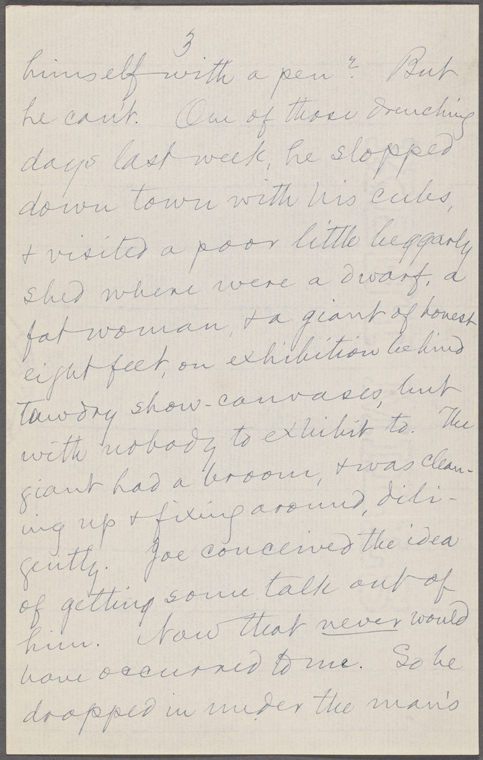 3
himself with a pen? But
he can't. One of those drenching
days last week, he slopped
down town with his cubs,
& visited a poor little beggarly
shed where were a dwarf, a
fat woman, & a giant of honest
eight feet, on exhibition behind
tawdry show-canvases, but
with nobody to exhibit to. The
giant had a broom, & was clean-
ing up & fixing around, dili-
gently. Joe conceived the idea
of getting some talk out of
him. Now that never would
have occurred to me. So he
dropped in under the man's